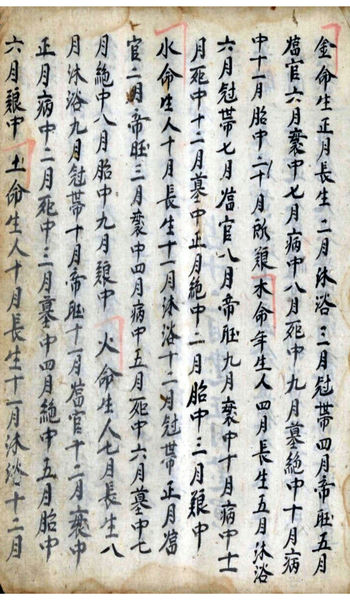 金命生正月長生二月沐浴三月冠帶四月帝旺五月
當官六月衰中七月病中八月死中九月墓絶中十月病
中十一月胎中二十月 木命年生人四月長生五月沐浴
六月冠帶七月當官八月帝旺九月衰中十月病中士
月死中十二月墓中正月絶中二月胎中三月中
水命生人十月長生十一月沐浴十二月冠帶正月當
官二月帝旺三月衰中四月病中五月死中六月墓中七
月絶中八月胎中九月中 火命生人七月長生八
月沐浴九月冠帶十月帝旺十一月當官十二月衰中
正月病中二月死中三月墓中四月絶中五月胎中
六月中 土命生人十月長生十一月沐浴十二月